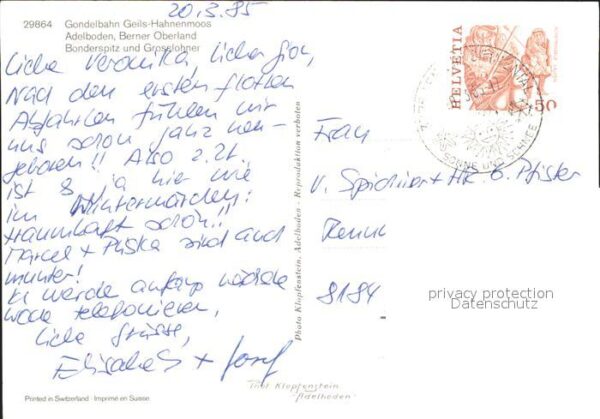 20.3.85
29864 Gondelbahn Geils-Hahnenmoos
Adelboden, Berner Oberland
Bonderspitz und Grosslohner
Liebe Veronika, lieber
Nach den ersten flotten
Abfahrten fühlen wir
uns schon ganz neu-
geboren!! Also z.Zt.
ist 's ja hier wie
im Wintermärchen:
traumhaft schön!!
Marcel + sind auch
munter!
werde anfangs nächste
Woche telefonieren,
Liebe Grüsse,
Elisabeth + Josef
Printed in Switzerland · Imprimé en Suisse
Photo Klopfenstein, Adelboden - Reproduktion verboten
HELVETIA
50
SONNE UND SCHNEE
Frau
V. + Hr. G. Pfister
8184
privacy protection
Datenschutz
Phot. Klopfenstein
Adelboden